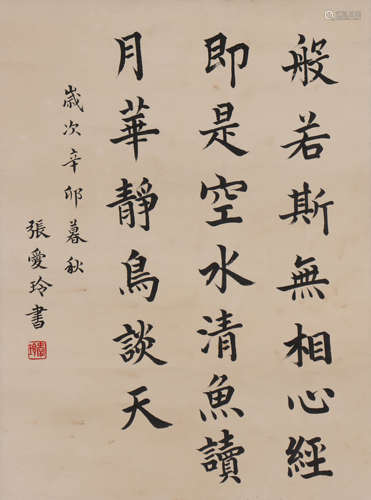 般若斯無相心經
即是空水清魚讀
月華靜鳥談天
歲次辛卯暮秋
張愛玲書